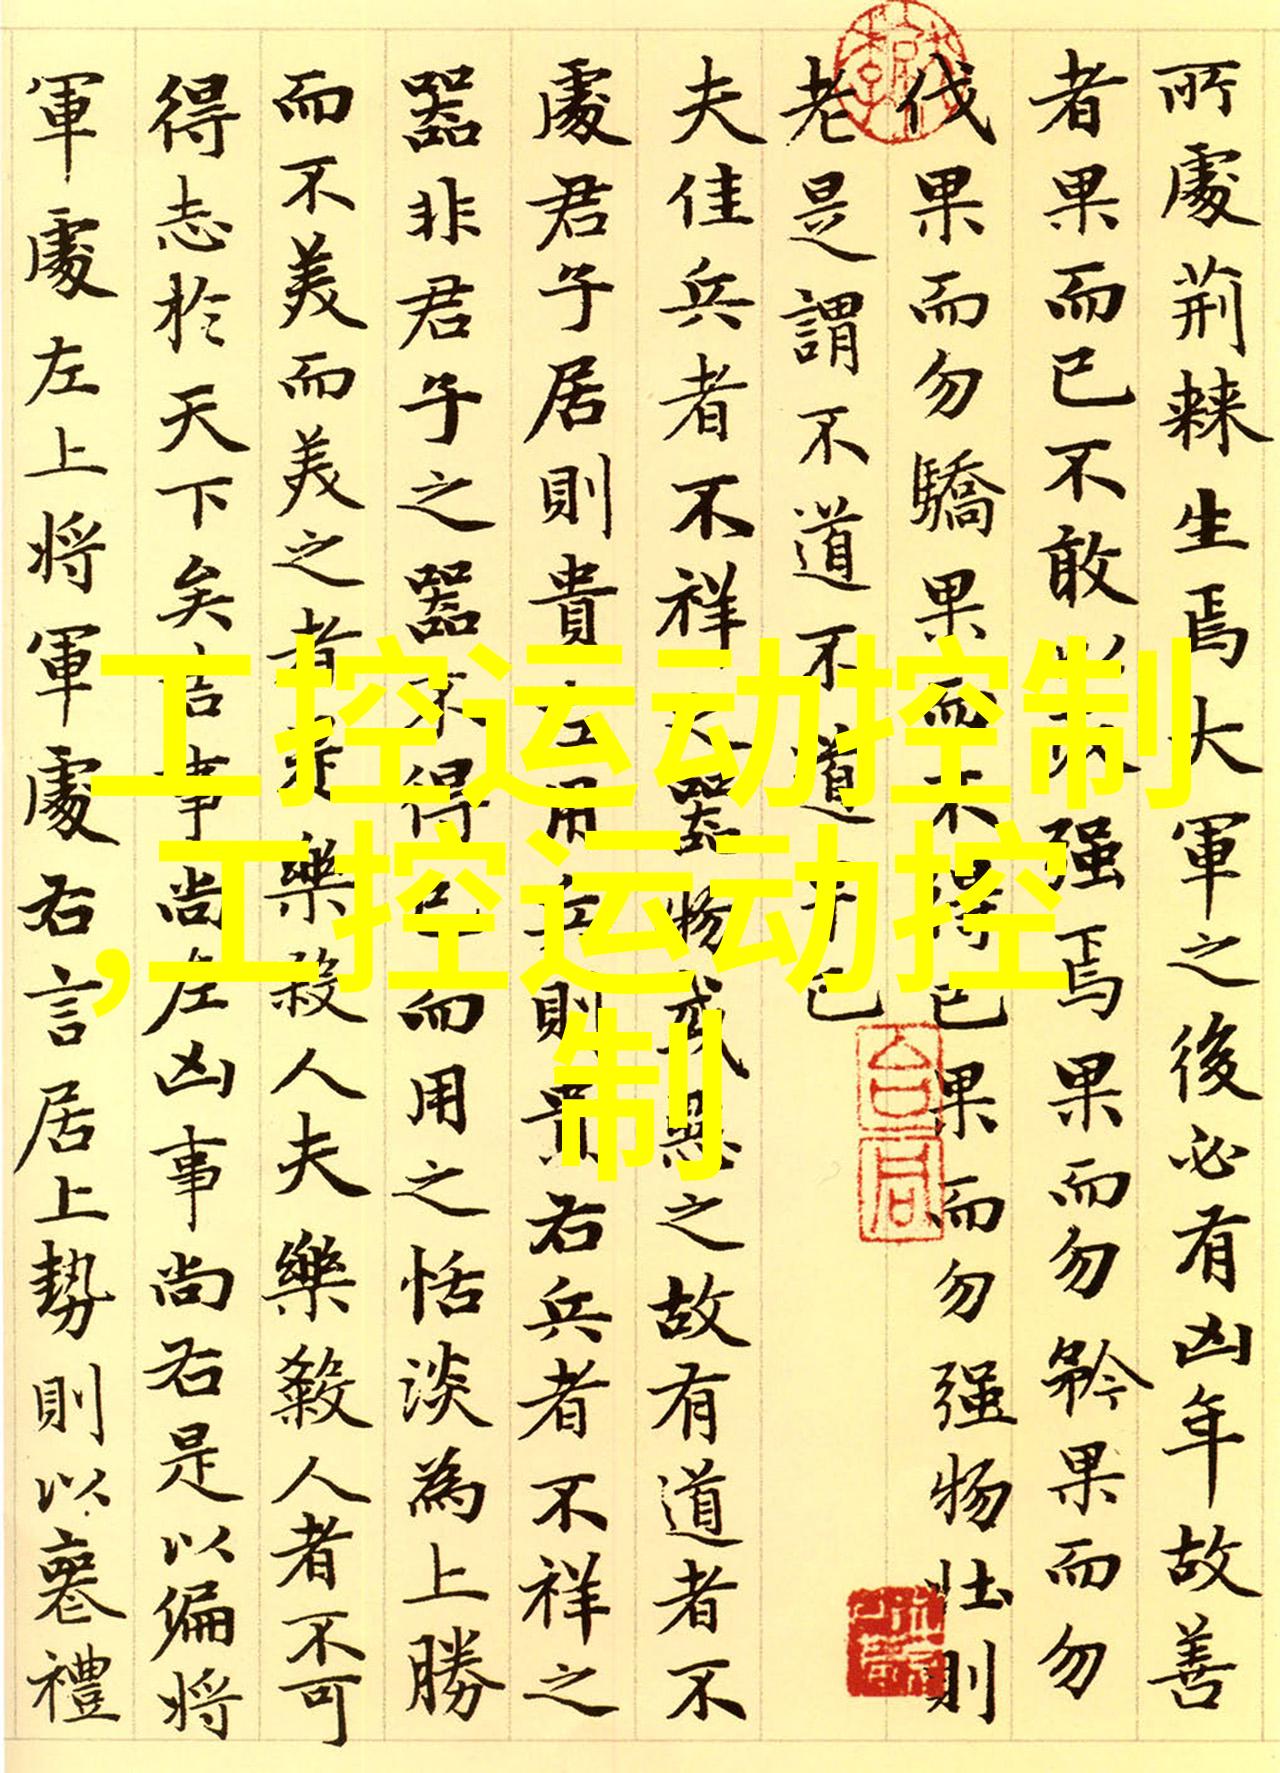 所處荊棘生焉大軍之後必有凶年故善
者果而已不敢以取强焉果而勿矜果而勿
伐果而勿驕果而不得已果而勿强物壯則
老是謂不道不道早已
夫佳兵者不祥之器物或惡之故有道者不
處君子居則貴左用兵則貴右兵者不祥之
器非君子之器不得已而用之恬淡為上勝
而不美而美之者是樂殺人夫樂殺人者不可
得志於天下矣吉事尚左凶事尚右是以偏將
軍處左上將軍處右言居上勢則以喪禮
工控运动控制
,工控运动控
制